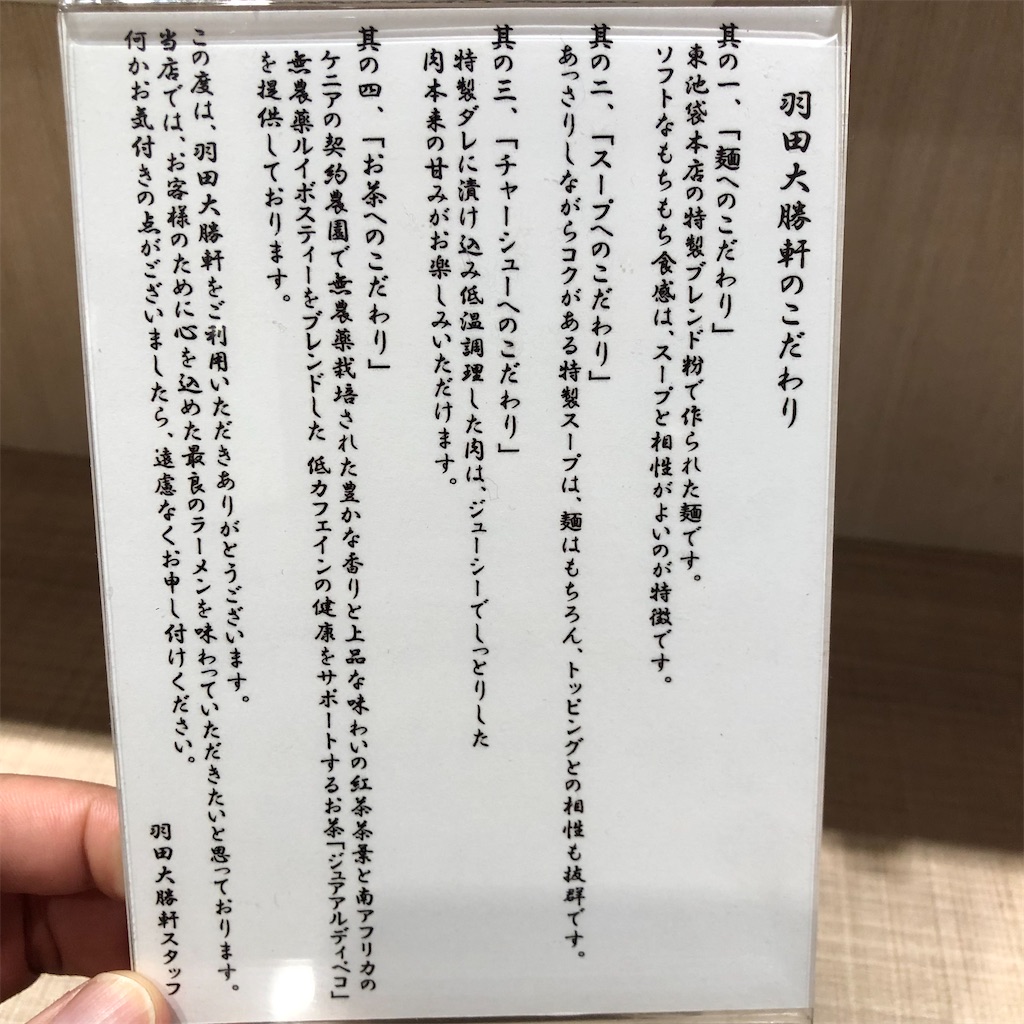 羽田大勝軒のこだわり
其の一、「麺へのこだわり」
東池袋本店の特製ブレンド粉で作られた麺です。
ソフトなもちもち食感は、スープと相性がよいのが特徴です。
其の二、「スープへのこだわり」
あっさりしながらコクがある特製スープは、麺はもちろん、トッピングとの相性も抜群です。
其の三、「チャーシューへのこだわり」
特製ダレに漬け込み低温調理した肉は、ジューシーでしっとりした
肉本来の甘みがお楽しみいただけます。
其の四、「お茶へのこだわり」
ケニアの契約農園で無農薬栽培された豊かな香りと上品な味わいの紅茶茶葉と南アフリカの
無農薬ルイボスティーをブレンドした 低カフェインの健康をサポートするお茶「ジュアアルディ、ペコ」
を提供しております。
この度は、羽田大勝軒をご利用いただきありがとうございます。
当店では、お客様のために心を込めた最良のラーメンを味わっていただきたいと思っております。
何かお気付きの点がございましたら、遠慮なくお申し付けください。
羽田大勝軒スタッフ